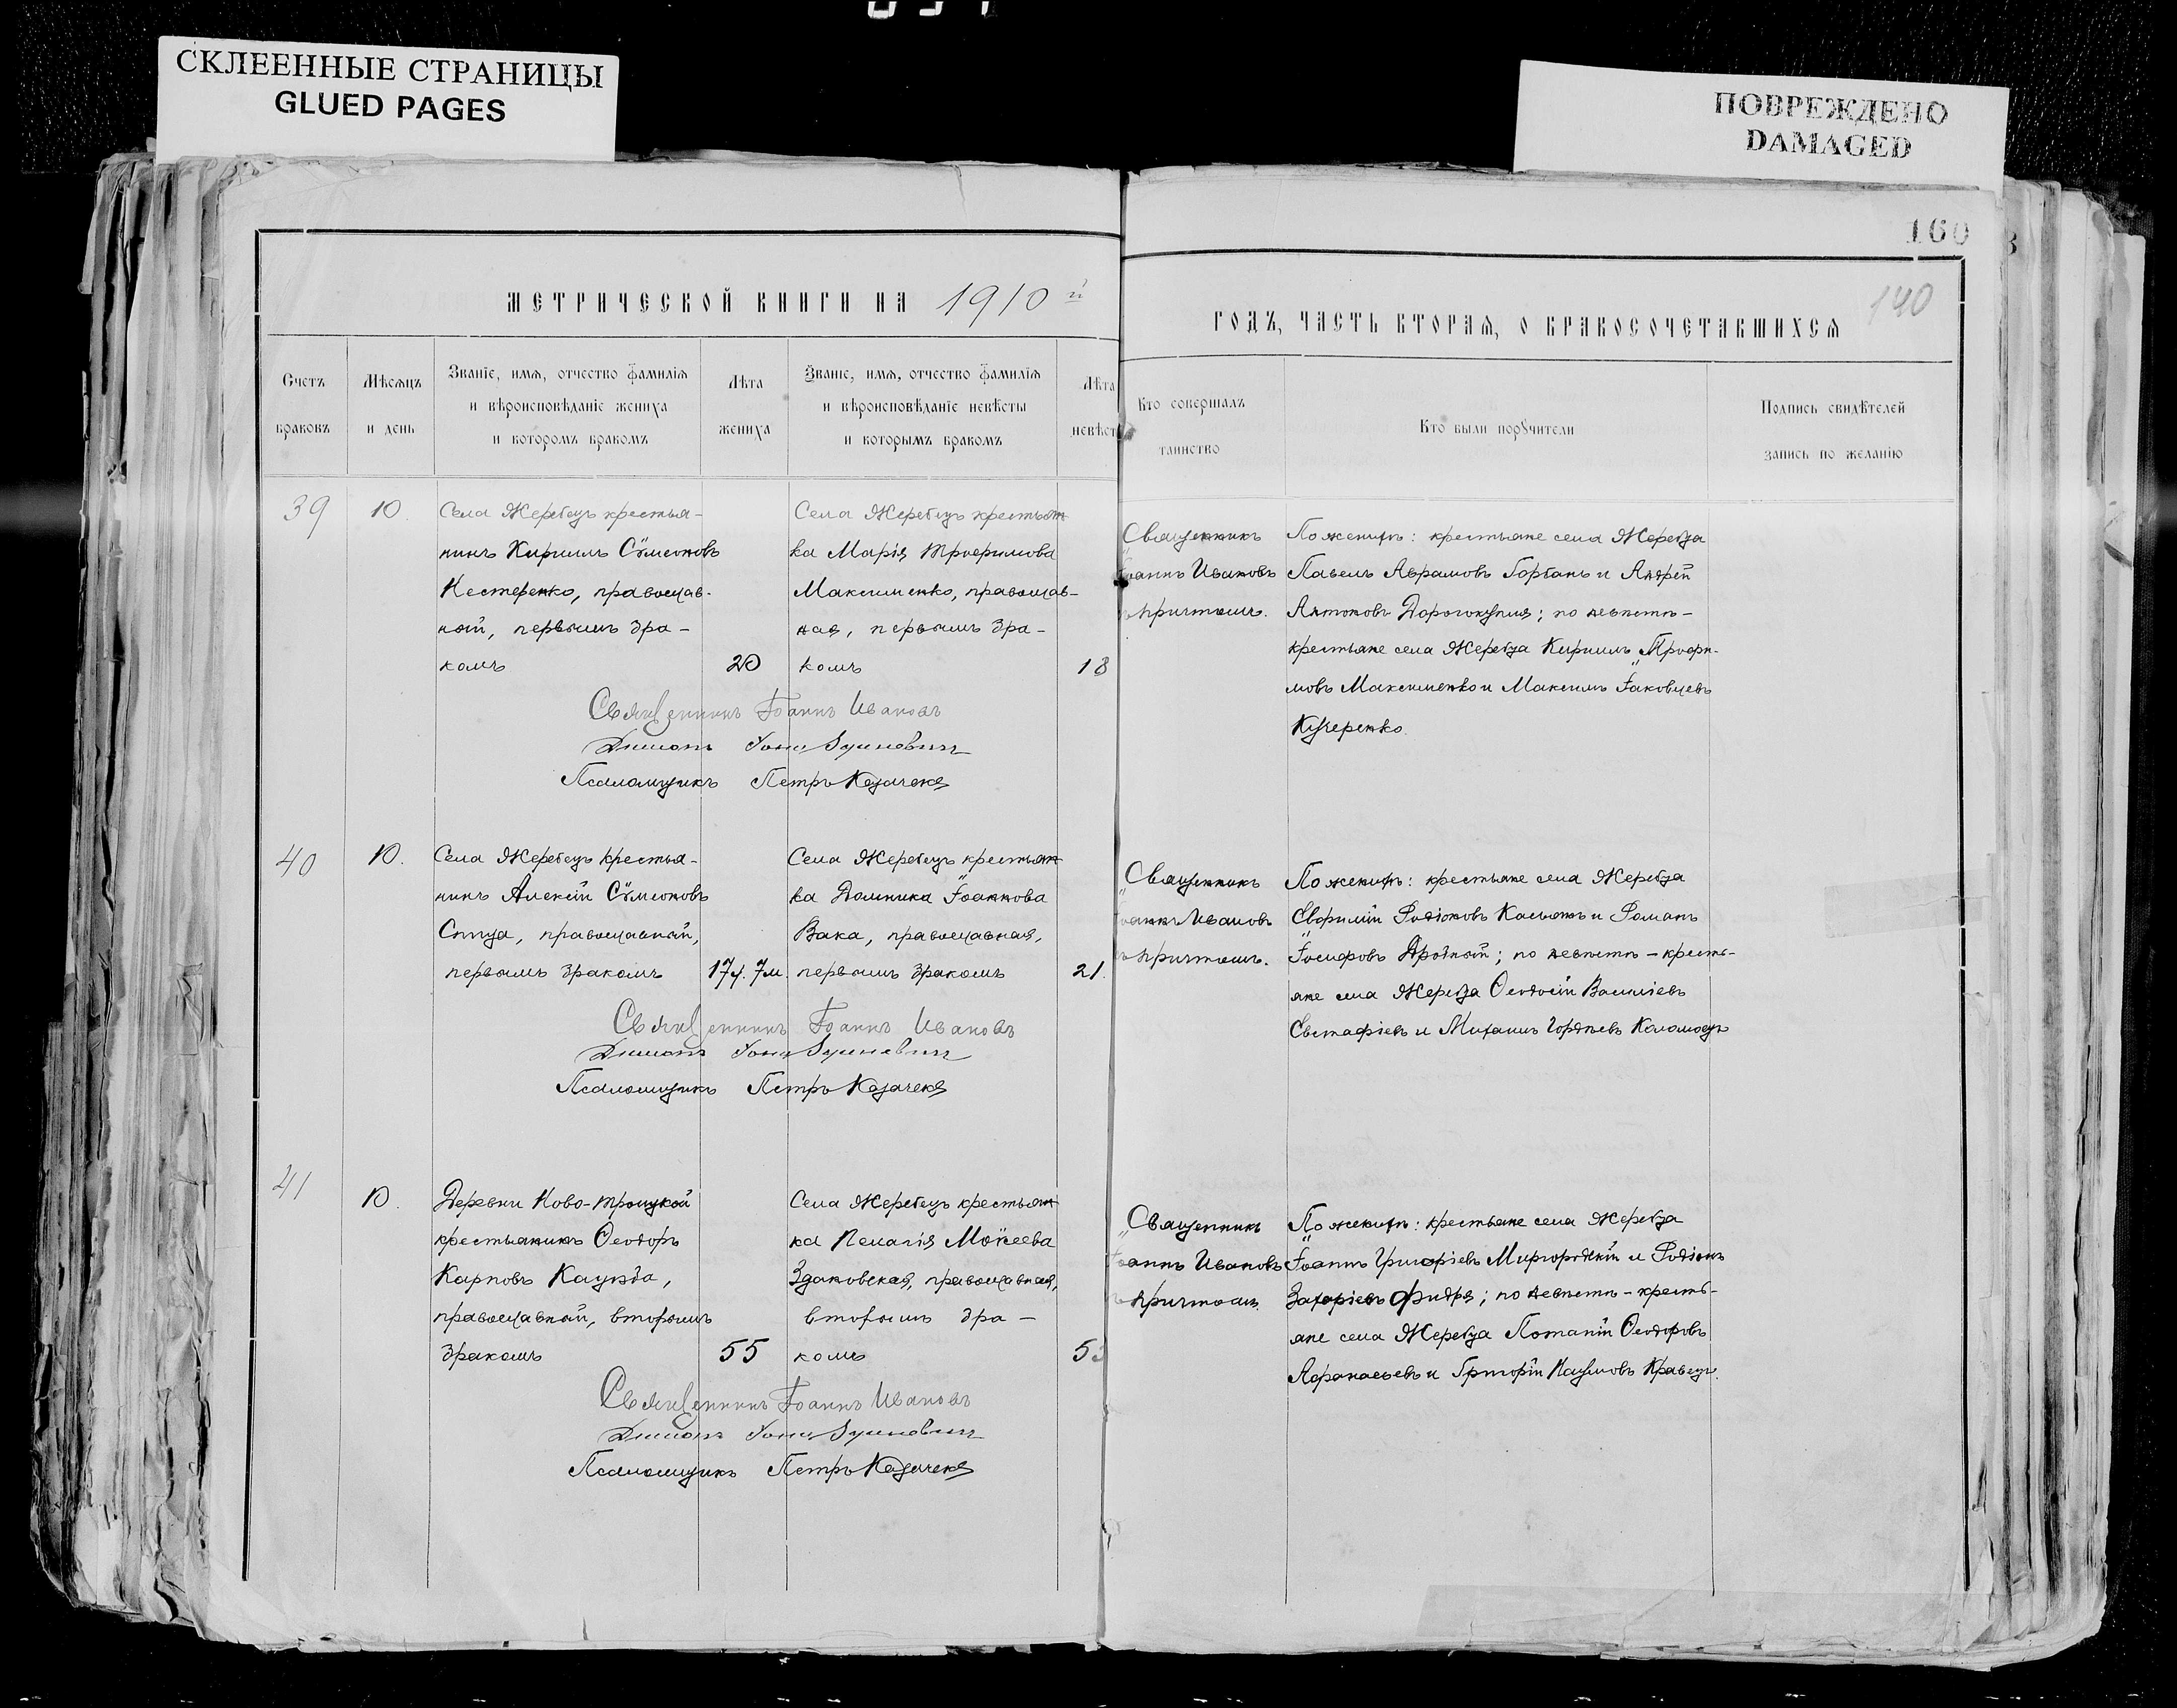 СКЛЕЕННЫЕ СТРАНИЦЫ
GLUED PAGES
ПОВРЕЖДЕНО
DAMAGED
160
140
МЕТРИЧЕСКОЙ КНИГИ НА 1910 й
ГОДЪ, ЧАСТЬ ВТОРАЯ, О БРАКОСОЧЕТАВШИХСЯ
Счетъ
браковъ
Мѣсяцъ
и день
Званіе, имя, отчество фамилія
и вѣроисповѣданіе жениха
и которомъ бракомъ
Лѣта
жениха
Званіе, имя, отчество фамилія
и вѣроисповѣданіе невѣсты
и которымъ бракомъ
Лѣта
невѣст
Кто совершалъ
таинство
Кто были поручители
Подпись свидѣтелей
запись по желанію
39
10.
Села Жеребецъ крестья-
нинъ Кириллъ Сѵмеоновъ
Нестеренко, православ-
ный, первымъ бра-
комъ
20
Села Жеребецъ крестьян
ка Марія Трофимова
Максименко, православ-
ная, первымъ бра-
комъ
18
Священникъ
Іоаннъ Ивановъ
причтомъ.
По женихѣ: крестьяне села Жеребца
Павелъ Аврамовъ Горбань и Андрей
Антоновъ Дорогокупля; по невѣстѣ -
крестьяне села Жеребца Кириллъ Трофи-
мовъ Максименко и Максимъ Іаковлевъ
Кучеренко.
Священникъ Іоаннъ Ивановъ
Діаконъ
Псаломщикъ Петръ
40
10.
Села Жеребецъ крестья-
нинъ Алексій Сѵмеоновъ
православный,
первымъ бракомъ
17 г. 7 м.
Села Жеребецъ крестьян
ка Домника Іоаннова
Вака, православная,
первымъ бракомъ
21.
Священникъ
Іоаннъ Ивановъ
причтомъ.
По женихѣ: крестьяне села Жеребца
Евфимій Родіоновъ и Романъ
Іосифовъ Дробный; по невѣстѣ - кресть-
яне села Жеребца Ѳеодосій Василіевъ
Евстафіевъ и Михаилъ Гордѣевъ Коломоецъ
Священникъ Іоаннъ Ивановъ
Діаконъ
Псаломщикъ Петръ
41
10.
Деревни Ново-Троицкой
крестьянинъ Ѳеодоръ
Карповъ Каунда,
православный, вторымъ
бракомъ
55
Села Жеребецъ крестьян
ка Пелагія Моѵсеева
Здановская, православная,
вторымъ бра-
комъ
Священникъ
Іоаннъ Ивановъ
причтомъ
По женихѣ: крестьяне села Жеребца
Іоаннъ Григоріевъ Миргородскій и Родіонъ
Захаріевъ Фидря; по невѣстѣ - кресть-
яне села Жеребца Потапій Ѳеодоровъ
Афанасьевъ и Григорій Наумовъ Кравецъ.
Священникъ Іоаннъ Ивановъ
Діаконъ
Псаломщикъ Петръ